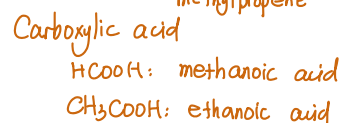 methylpropene
Carboxylic acid
HCOOH: methanoic acid
CH₃COOH: ethanoic acid